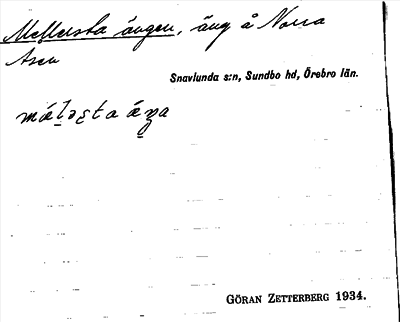 Mellersta ängen, äng å Norra
Åsen
Snavlunda s:n, Sundbo hd, Örebro län.
GÖRAN ZETTERBERG 1934.